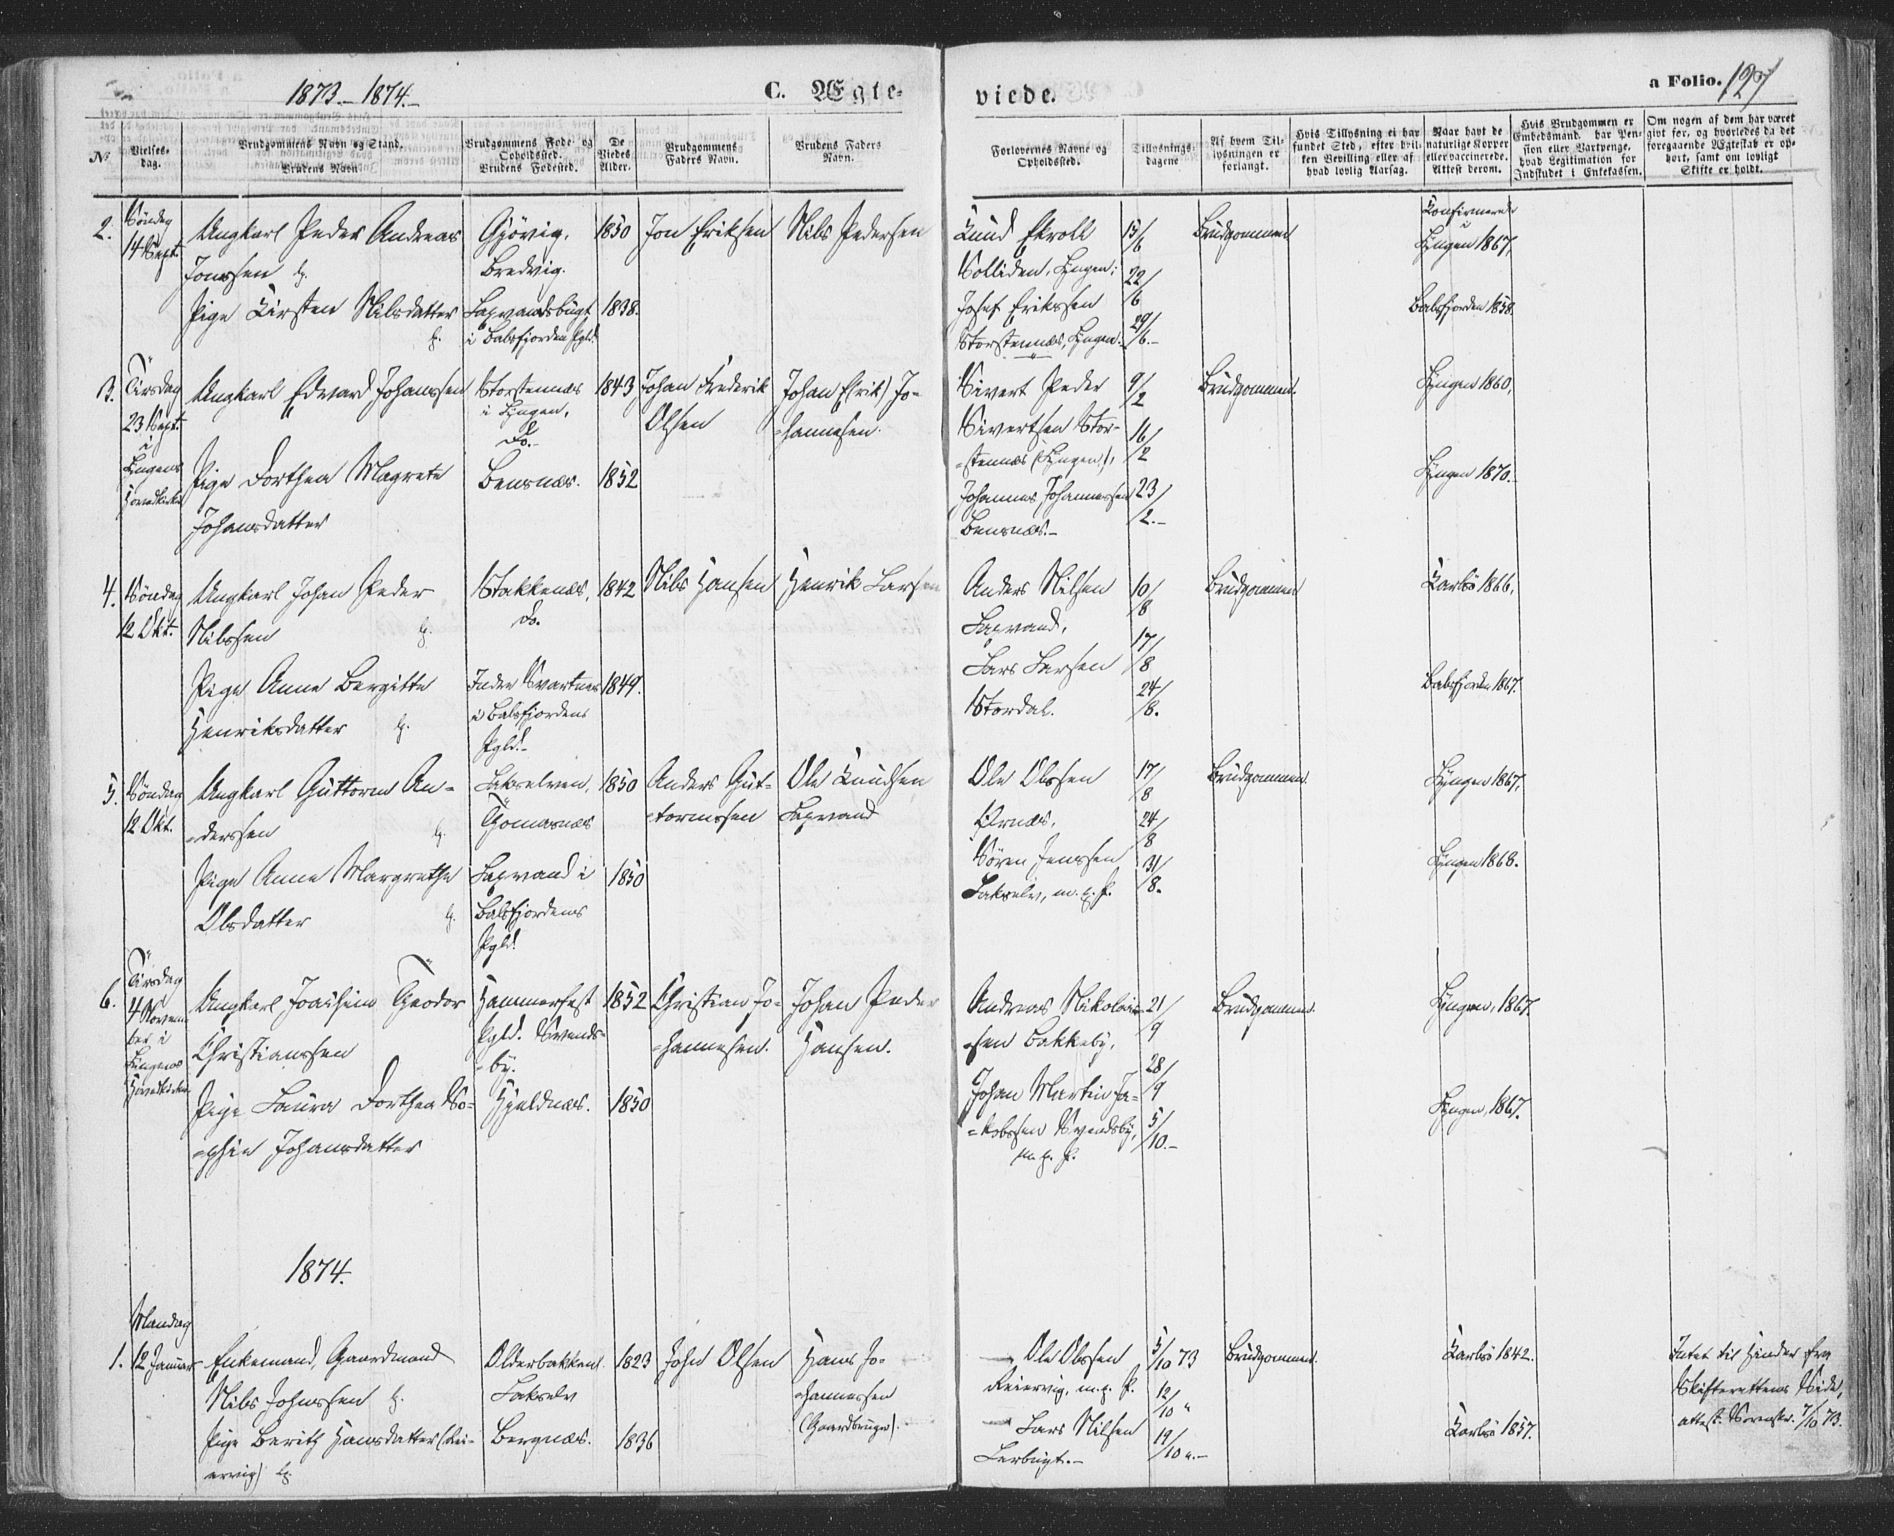 1873-1874.-
C. Ægte-
viede.
a Folio. 127
No
Vielses-
dag.
Brudgommens Navn og Stand.
Brudens Navn
Brudgommens Føde- og
Opholdssted.
Brudens Fødested.
De
Viedes
Alder.
Brudgommens
Faders Navn.
Brudens Faders
Navn.
Forlovernes Navne og
Opholdssted.
Tillysnings-
dagene
Af hvem Til-
lysningen er
forlangt.
Hvis Tillysning ei har
fundet Sted, efter hvil-
ken Bevilling eller af
hvad lovlig Aarsag.
Naar havt de
naturlige Kopper
eller vaccinerede.
Attest derom.
Hvis Brudgommen er
Embedsmand, har Pen-
sion eller Vartpenge,
hvad Legitimation for
Indskudet i Enkekassen.
Om nogen af dem har været
givt før, og hvorledes da det
foregaaende Ægteskab er op-
hørt, samt om lovligt
Skifte er holdt.
2.
Söndag
14 Sept.
Ungkarl Peder Andreas
Jonssen
Pige Kirsten Nilsdatter
Gjövig,
Bredvig.
Laxvandsbugt
i Balsfjorden Pgld.
1850
1838.
Jon Eriksen
Nils Pedersen
Knud Ekroll
Solliden, Lyngen;
Josef Erikssen
Storstennæs, Lyngen.
15/6
22/6
29/6.-
Brudgommen
Konfirmerede
Lyngen 1867,
Balsfjorden 1858.
3.
Tirsdag
23 Sept.
i
Lyngens
Hovedkirke
Ungkarl Edvard Johanssen
Pige Dorthea Magrete
Johansdatter
Storstennæs
i Lyngen,
do.
Bensnæs.
1843
1852
Johan Frederik
Olsen
Johan (Erik) Jo-
hannesen.
Sivert Peder
Sivertsen Stor-
stennæs (Lyngen),
Johannes Johannessen
Bensnæs.-
9/2
16/2
23/2.-
Brudgommen.
Lyngen 1860,
Lyngen 1870.-
4.
Söndag
12 Okt.
Ungkarl Johan Peder
Nilssen
Pige Anne Bergitte
Henriksdatter
Stakkenæs,
do.
Indre Svartnes
i Balsfjordens
Pgld.-
1842
1849.
Nils Hansen
Henrik Larsen
Anders Nilsen
Laxvand,
Lars Larsen
Stordal.
10/8
17/8
24/8.
Brudgommen
Karlsö 1866,
Balsfjorden 1867.
5.
Söndag
12 Okt.
Ungkarl Guttorm An-
derssen
Pige Anne Margrethe
Olsdatter
Lakselven,
Thomasnæs
Laxvand i
Balsfjordens
Pgld.
1850
1850
Anders Gut-
tormssen
Ole Knudsen
Laxvand
Ole Olssen
Ørnæs,
Sören Jenssen
Lakselv, m. p. f.
17/8
24/8
31/8.
Brudgommen
Lyngen 1867,
Lyngen 1868.
6.
Tirsdag
4 Novem-
ber i
Lyngens
Hovedkirke
Ungkarl Joachim Theodor
Christianssen
Pige Laura Dorthea So-
phie Johansdatter
Hammerfest
Pgld. Svends-
by.
Hjeldnæs.
1852
1850
Christian Jo-
hannesen.
Johan Peder
Hansen.
Andreas Nikolais-
sen Bakkeby,
Johan Martin Ja-
kobssen Svendsby,
m. p. f.
21/9
28/9
5/10.-
Brudgommen.
Lyngen, 1867.
Lyngen, 1867.
1874.
1.
Mandag
12 Januar
Enkemand, Gaardmand
Nils Johnssen
Pige Berith Hansdatter (Rei-
ervig)
Olderbakken,
Lakselv
Bergnæs.
1823
1836
John Olsen
Hans Jo-
hannessen
(Gaardbruger).
Ole Olssen
Reiervig, m. p. f.
Lars Nilsen
Lerbugt.-
5/10 73
12/10 "
19/10 ".-
Brudgommen.
Karlsö 1842.
Karlsö 1857.
Intet til Hinder fra
Skifterettens Side,
attest. Sorenskr. 7/10 73.